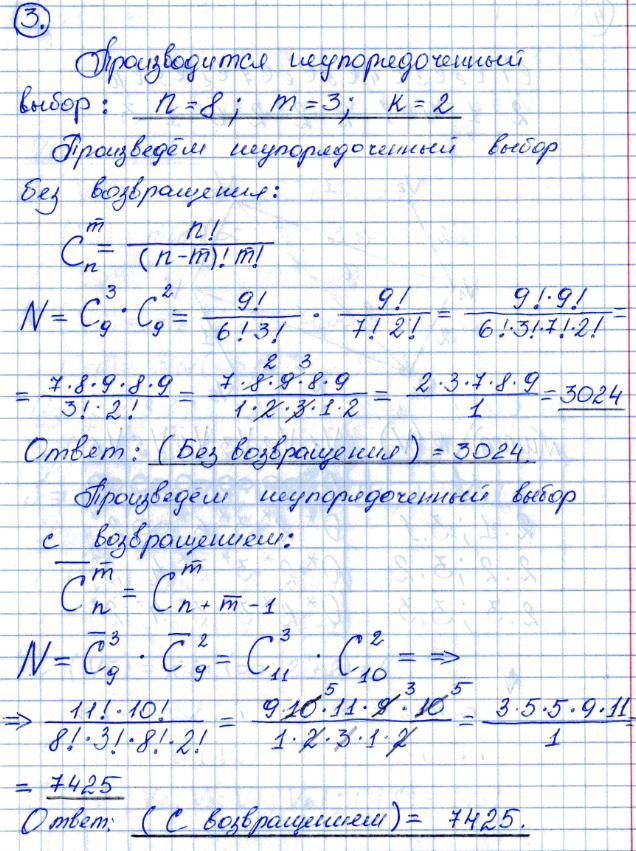 3.
Производится неупорядоченный
выбор: n = 8; m = 3; k = 2
Произведём неупорядоченный выбор
без возвращения:
C_n^m = n! / (n-m)! m!
N = C_9^3 · C_9^2 = 9! / 6! 3! · 9! / 7! 2! = 9! · 9! / 6! · 3! · 7! · 2! =
= 7·8·9·8·9 / 3! · 2! = 7·8·9·8·9 / 1·2·3·1·2 = 2·3·7·8·9 / 1 = 3024
Ответ: (Без возвращения) = 3024.
Произведём неупорядоченный выбор
с возвращением:
C̅_n^m = C_{n+m-1}^m
N = C̅_9^3 · C̅_9^2 = C_11^3 · C_10^2 = ⇒
⇒ 11! · 10! / 8! · 3! · 8! · 2! = 9·10·11·9·10 / 1·2·3·1·2 = 3·5·5·9·11 / 1 =
= 7425
Ответ: (С возвращением) = 7425.